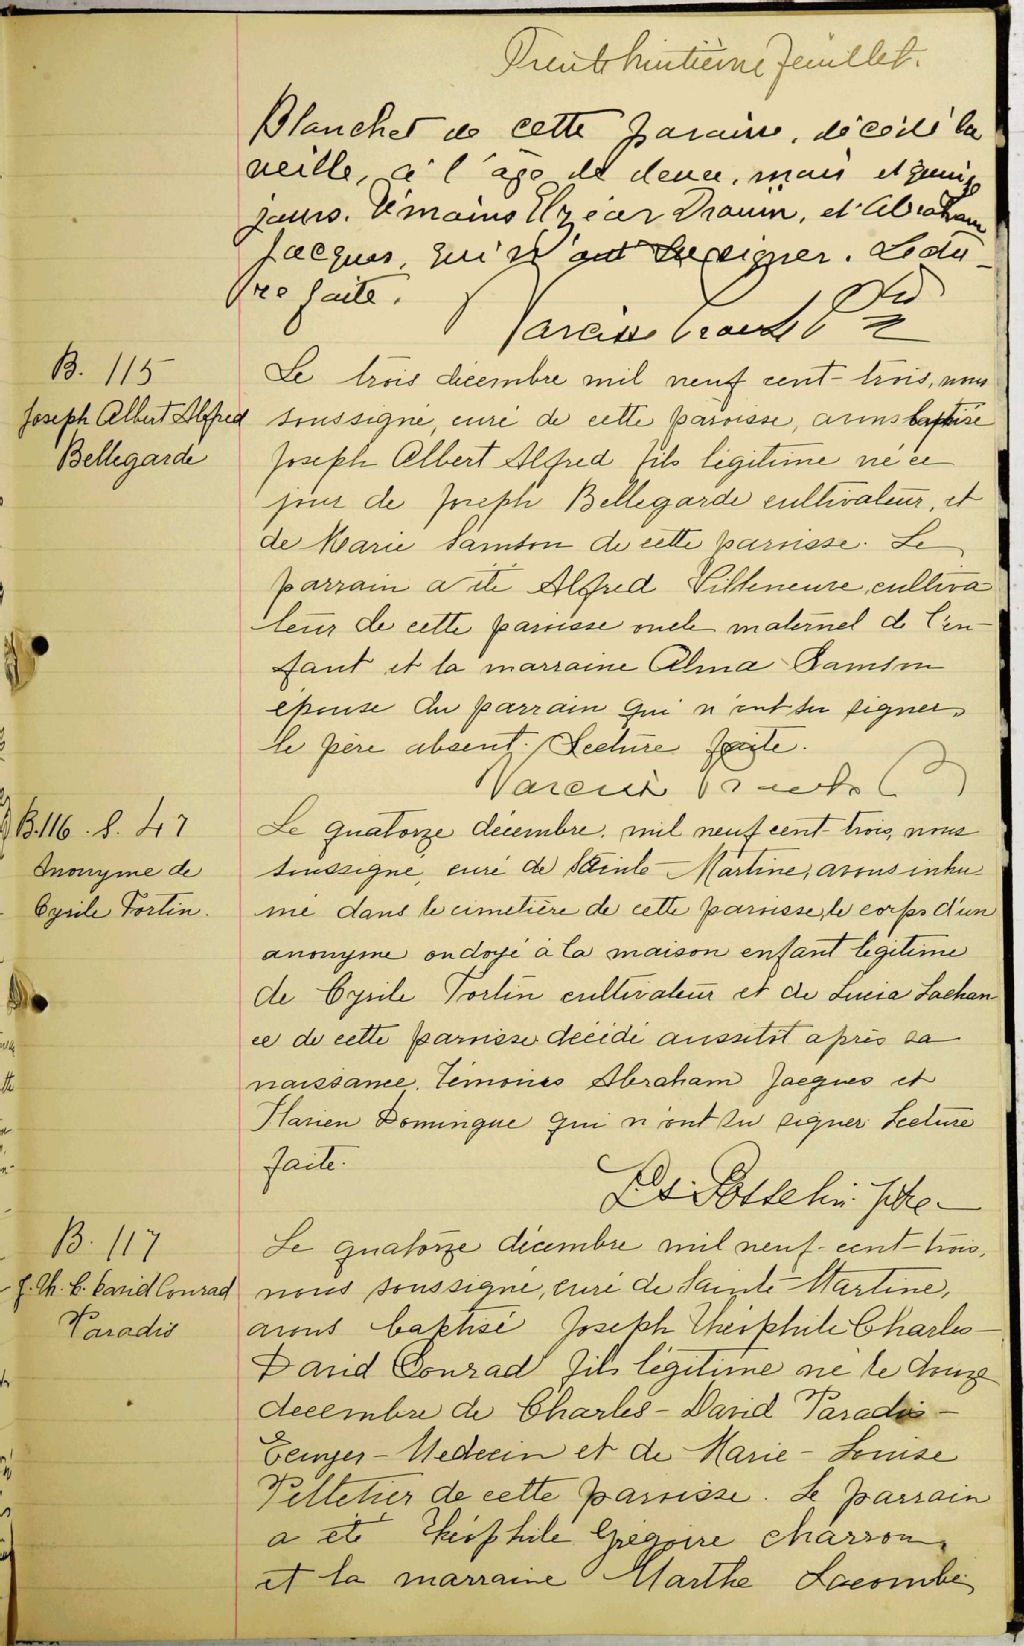 Trente huitième feuillet.
Blanchet de cette paroisse, décédé la
veille, à l'âge de deux, mois et quinze
jours. Témoins Elzéar Drouin, et Abraham
Jacques, qui n'ont su signer. Lectu-
re faite.
Narcisse Proulx Ptre
B. 115
Joseph Albert Alfred
Bellegarde
Le trois décembre mil neuf cent-trois, nous
soussigné, curé de cette paroisse, avons baptisé
Joseph Albert Alfred fils légitime né ce
jour de Joseph Bellegarde cultivateur, et
de Marie Samson de cette paroisse. Le
parrain a été Alfred Villeneuve cultiva
teur de cette paroisse oncle maternel de l'en-
fant et la marraine Alma Samson
épouse du parrain qui n'ont su signer,
le père absent. Lecture faite.
Narcisse Proulx
B.116. S. 47
Anonyme de
Cyrile Fortin.
Le quatorze décembre, mil neuf cent-trois, nous
soussigné, curé de Sainte-Martine, avons inhu
mé dans le cimetière de cette paroisse, le corps d'un
anonyme ondoyé à la maison enfant légitime
de Cyrile Fortin cultivateur et de Lucia Lachan
ce de cette paroisse décédé aussitôt après sa
naissance. Témoins Abraham Jacques et
Flavien Domingue qui n'ont su signer Lecture
faite.
Ls. Gosselin. ptre-
B. 117
J. Th. C. David Conrad
Paradis
Le quatorze décembre mil neuf-cent-trois,
nous soussigné, curé de Sainte-Martine,
avons baptisé Joseph Théophile Charles-
David Conrad fils légitime né le douze
decembre de Charles-David Paradis-
Ecuyer-Medecin et de Marie-Louise
Pelletier de cette paroisse. Le parrain
a été Théophile Grégoire Charron,
et la marraine Marthe Lacombe,